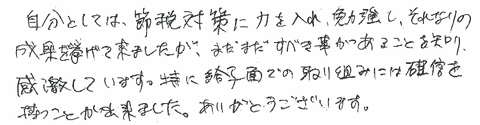 自分としては、節税対策に力を入れ、勉強し、それなりの
成果を挙げて来ましたが、まだまだすべき事があることを知り、
感激しています。特に給与面での取り組みには確信を
持つことが出来ました。ありがとうございます。